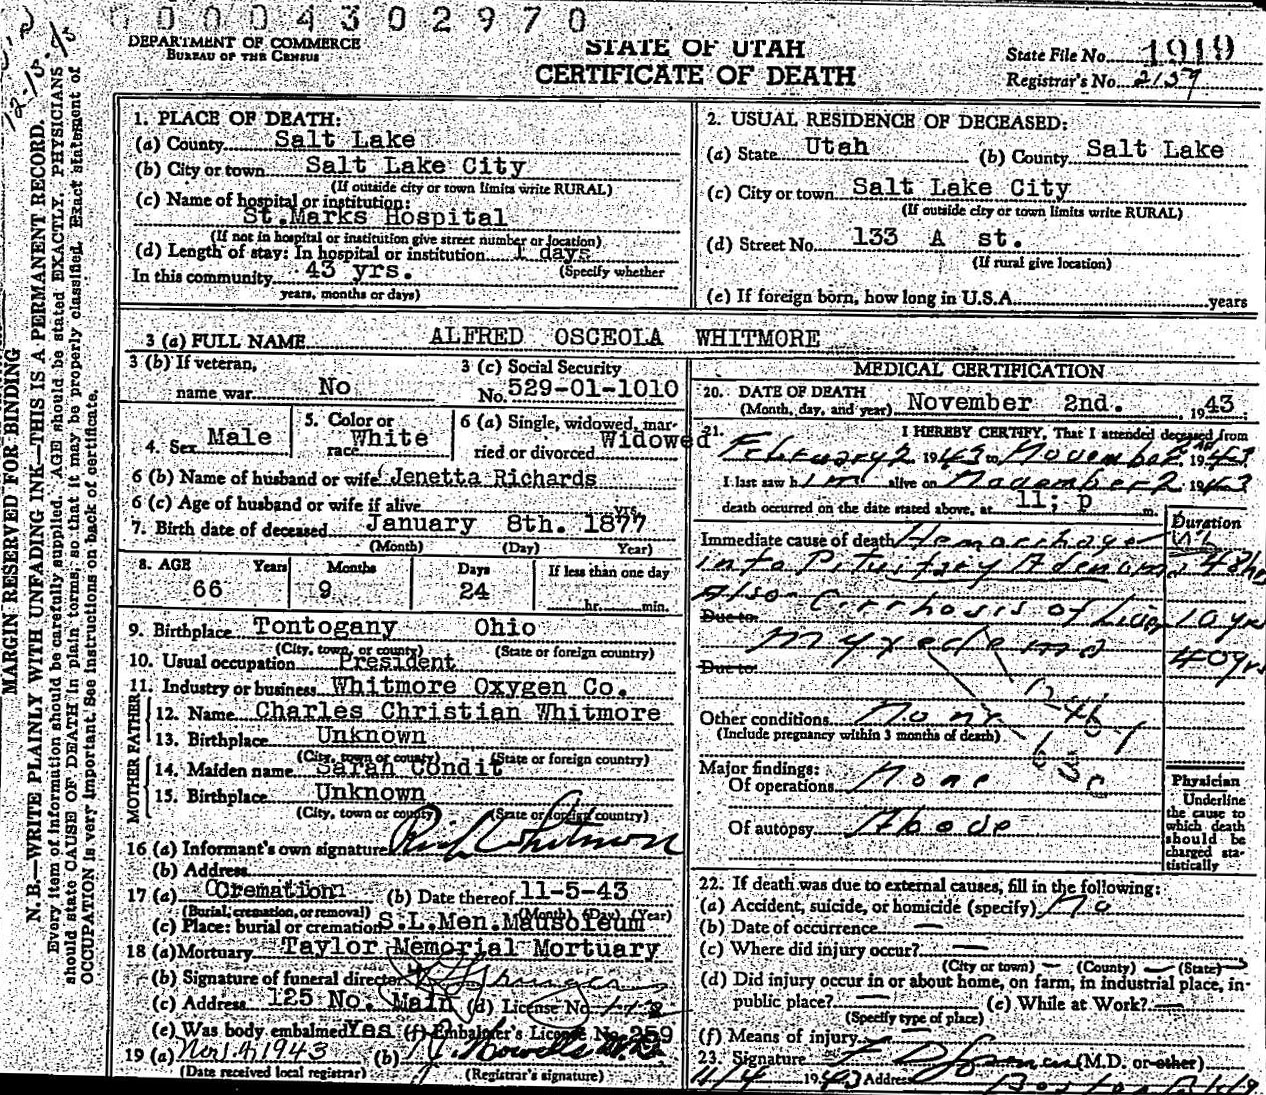 0004302970
DEPARTMENT OF COMMERCE
BUREAU OF THE CENSUS
STATE OF UTAH
CERTIFICATE OF DEATH
State File No. 1919
Registrar's No. 2137
MARGIN RESERVED FOR BINDING
N. B.—WRITE PLAINLY WITH UNFADING INK—THIS IS A PERMANENT RECORD.
Every item of information should be carefully supplied. AGE should be stated EXACTLY. PHYSICIANS
should state CAUSE OF DEATH in plain terms, so that it may be properly classified. Exact statement of
OCCUPATION is very important. See instructions on back of certificate.
1. PLACE OF DEATH:
(a) County Salt Lake
(b) City or town Salt Lake City
(If outside city or town limits write RURAL)
(c) Name of hospital or institution:
St.Marks Hospital
(If not in hospital or institution give street number or location)
(d) Length of stay: In hospital or institution 1 days
In this community 43 yrs. (Specify whether
years, months or days)
2. USUAL RESIDENCE OF DECEASED:
(a) State Utah (b) County Salt Lake
(c) City or town Salt Lake City
(If outside city or town limits write RURAL)
(d) Street No. 133 A st.
(If rural give location)
(e) If foreign born, how long in U.S.A. years
3 (a) FULL NAME ALFRED OSCEOLA WHITMORE
3 (b) If veteran,
name war No
3 (c) Social Security
No. 529-01-1010
4. Sex Male
5. Color or
race White
6 (a) Single, widowed, mar-
ried or divorced Widowed
6 (b) Name of husband or wife Jenetta Richards
6 (c) Age of husband or wife if alive yrs.
7. Birth date of deceased January 8th. 1877
(Month) (Day) Year)
8. AGE Years Months Days If less than one day
66 9 24 hr. min.
9. Birthplace Tontogany Ohio
(City, town, or county) (State or foreign country)
10. Usual occupation President
11. Industry or business Whitmore Oxygen Co.
FATHER
12. Name Charles Christian Whitmore
13. Birthplace Unknown
(City, town or county) (State or foreign country)
MOTHER
14. Maiden name Sarah Condit
15. Birthplace Unknown
(City, town or county) (State or foreign country)
16 (a) Informant's own signature Whitmore
(b) Address
17 (a) Cremation (b) Date thereof 11-5-43
(Burial, cremation, or removal) (Month) (Day) (Year)
(c) Place: burial or cremation S.L.Men.Mausoleum
18 (a) Mortuary Taylor Memorial Mortuary
(b) Signature of funeral director
(c) Address 125 No. Main (d) License No.
(e) Was body embalmed Yes (f) Embalmer's License No. 259
19 (a) Nov. 4, 1943 (b)
(Date received local registrar) (Registrar's signature)
MEDICAL CERTIFICATION
20. DATE OF DEATH
(Month, day, and year) November 2nd. 1943
21. I HEREBY CERTIFY, That I attended deceased from
February 2 1943 to November 2nd 1943
I last saw him alive on November 2 1943
death occurred on the date stated above, at 11; p m.
Duration
Immediate cause of death Hemorrhage
into Pituitary Adenoma 48 hrs
Also Cirrhosis of Liver 10 yrs
Due to
Myxedema 40 yrs
Due to
Other conditions None
(Include pregnancy within 3 months of death)
Major findings:
Of operations None
Of autopsy Above
Physician
Underline
the cause to
which death
should be
charged sta-
tistically
22. If death was due to external causes, fill in the following:
(a) Accident, suicide, or homicide (specify) No
(b) Date of occurrence —
(c) Where did injury occur? —
(City or town) — (County) — (State) —
(d) Did injury occur in or about home, on farm, in industrial place, in-
public place? — (e) While at Work? —
(Specify type of place)
(f) Means of injury —
23. Signature (M.D. or other)
11/4 1943 Address Boston Bldg